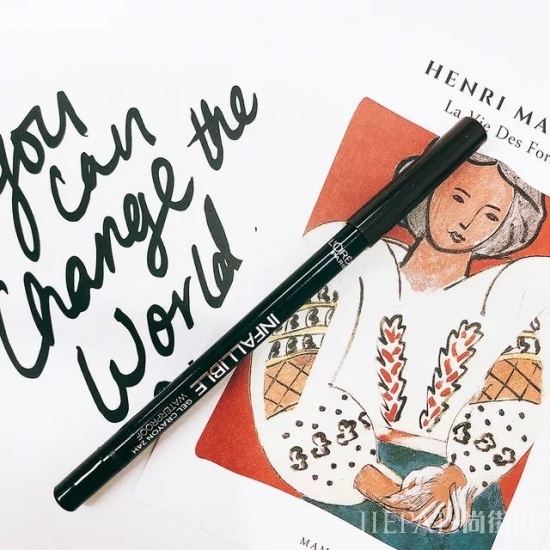 you
can
Change the
World.
HENRI MA
La Vie Des For
L'ORÉ
PARIS
INFALLIBLE
GEL CRAYON 24H
WATERPROOF
MAM
尚街拍